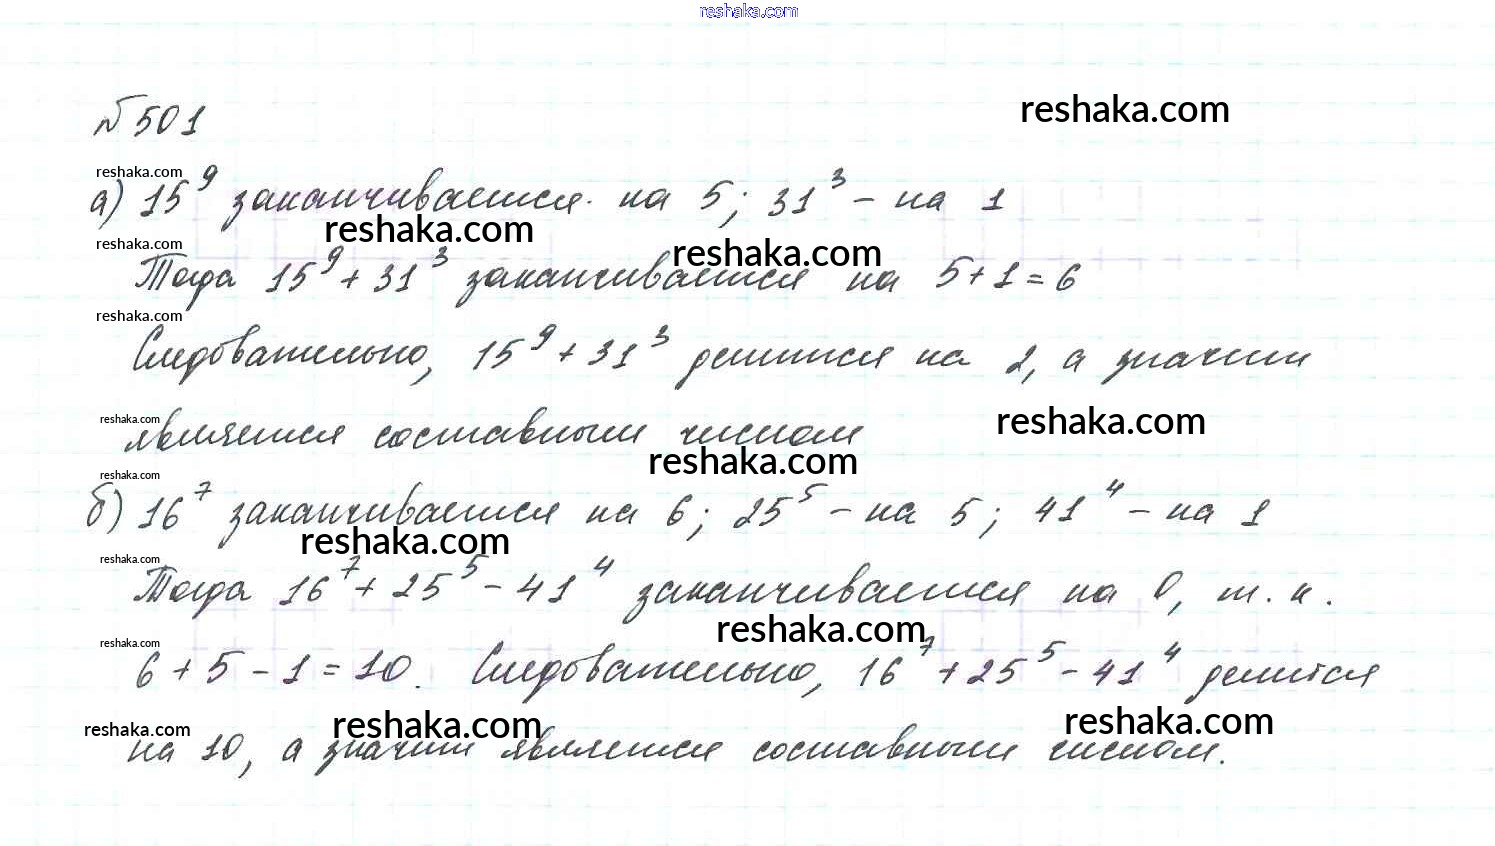 reshaka.com
№501
reshaka.com
reshaka.com
а) 15⁹ заканчивается на 5; 31³ – на 1
reshaka.com
reshaka.com
reshaka.com
Тогда 15⁹ + 31³ заканчивается на 5+1=6
reshaka.com
Следовательно, 15⁹ + 31³ делится на 2, а значит
reshaka.com
reshaka.com
является составным числом
reshaka.com
reshaka.com
б) 16⁷ заканчивается на 6; 25⁵ – на 5; 41⁴ – на 1
reshaka.com
reshaka.com
Тогда 16⁷ + 25⁵ – 41⁴ заканчивается на 0, т.к.
reshaka.com
reshaka.com
6 + 5 – 1 = 10. Следовательно, 16⁷ + 25⁵ – 41⁴ делится
reshaka.com
reshaka.com
reshaka.com
на 10, а значит является составным числом.